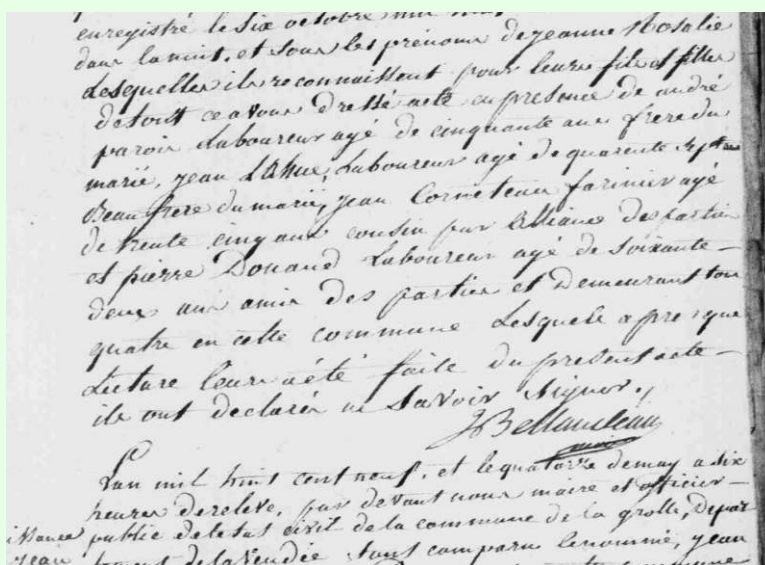 enregistré le six octobre mil huit
dans la nuit, et sous les prénoms de jeanne Rosalie
Lesquelles ils reconnaissent pour leurs fils et filles
de tout ce avons dressé acte en presence de andré
parois Laboureur agé de cinquante ans frere du
marié, jean Lahue, Laboureur agé de quarente sept ans
Beau frere du marié, jean Corneteau farinier agé
de trente cinq ans cousin par alliance des parties
et pierre Douaud Laboureur agé de soixante
deux ans amis des parties et Demeurant tous
quatre en cette commune Lesquels apres que
Lecture leur a été faite du present acte
ils ont declarés ne Savoir Signer.
JBellaudeau
L'an mil huit cent neuf, et le quatorze de may a dix
heures de releve, par devant nous maire et officier
public de letat civil de la commune de la grolle, Depar
tement de la Vendée sont comparu le nommé, jean